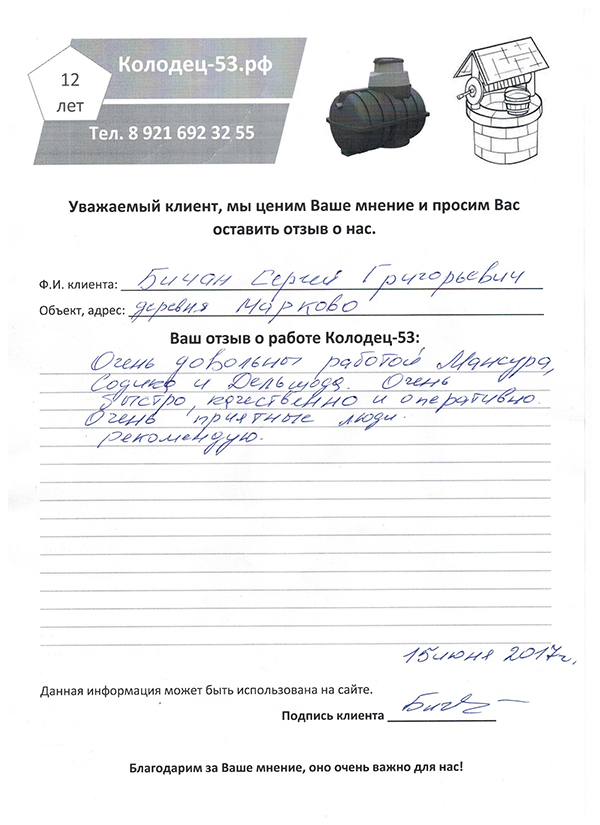 12
лет
Колодец-53.рф
Тел. 8 921 692 32 55
Уважаемый клиент, мы ценим Ваше мнение и просим Вас
оставить отзыв о нас.
Ф.И. клиента: Бичан Сергей Григорьевич
Объект, адрес: деревня Марково
Ваш отзыв о работе Колодец-53:
Очень довольны работой Мансура,
Содика и Дельшода. Очень
быстро, качественно и оперативно.
Очень приятные люди.
рекомендую.
15 июня 2017г.
Данная информация может быть использована на сайте.
Подпись клиента
Благодарим за Ваше мнение, оно очень важно для нас!